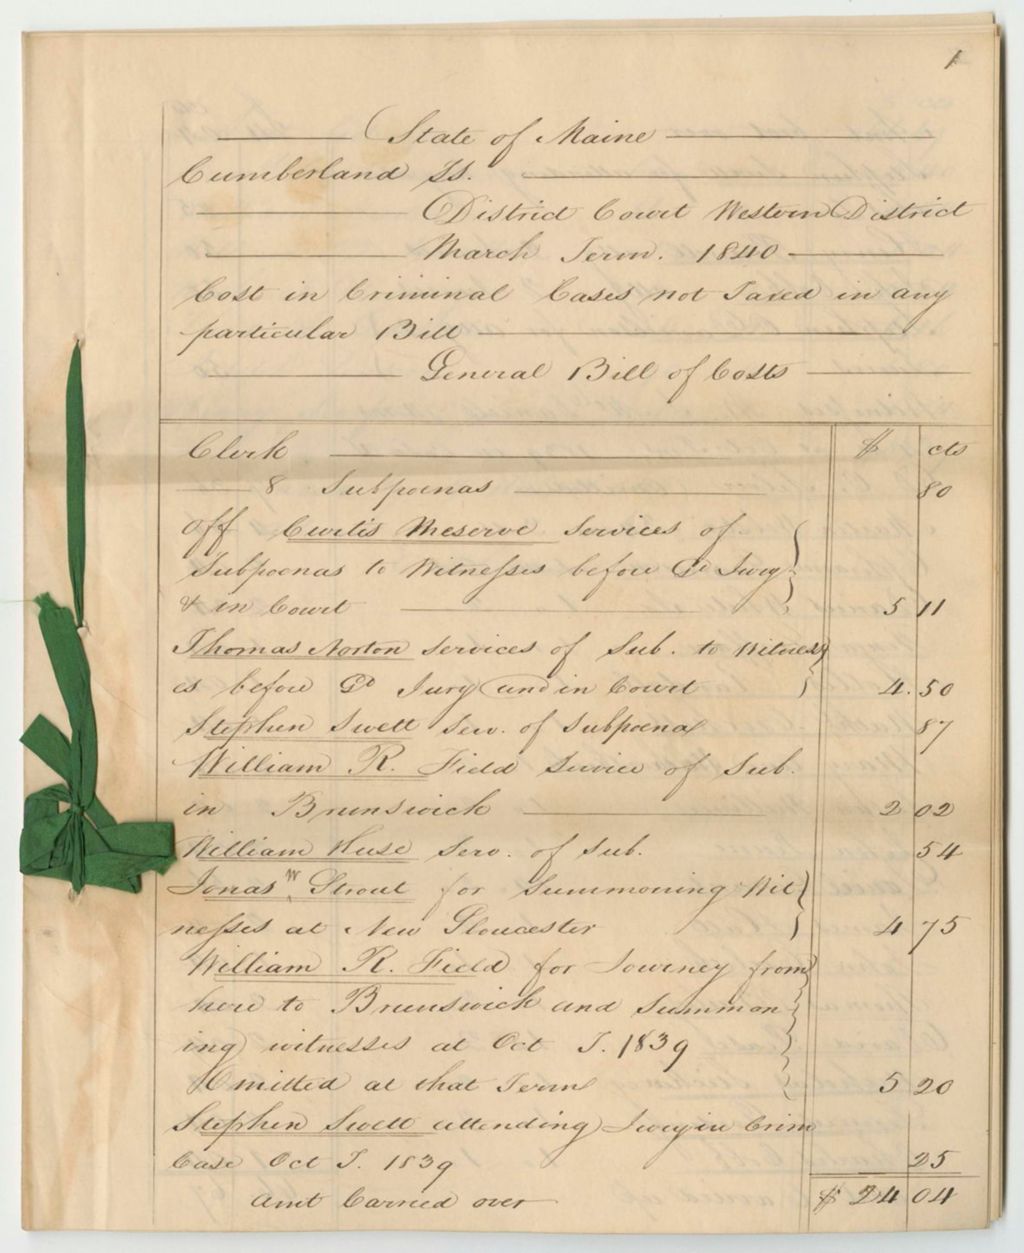 1
State of Maine
Cumberland SS.
District Court Western District
March Term. 1840
Cost in Criminal Cases not Taxed in any
particular Bill
General Bill of Costs
Clerk $ cts
8 Subpoenas 80
Off Curtis Meserve Services of
Subpoenas to Witnesses before Gd Jury
& in Court 5 11
Thomas Norton Services of Sub. to Witness
es before Gd Jury and in Court 4.50
Stephen Swett Serv. of Subpoena 87
William R. Field Service of Sub.
in Brunswick 2 02
William Huse Serv. of Sub. 54
Jonas W Strout for Summoning Wit
nesses at New Gloucester 4 75
William R. Field for Journey from
here to Brunswick and Summon
ing witnesses at Oct T. 1839
Omitted at that Term 5 20
Stephen Swett attending Jury in Crim
Case Oct T. 1839 25
amt Carried over $ 24 04